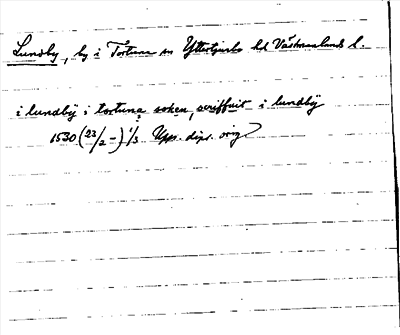 Lundby, by i Tortuna sn Yttertjurbo hd Västmanlands l.
i lundbÿ i tortuna soken, scriffuit i lundbÿ
1530 (23/2 – ) 1/3 Upps. dipl. orig